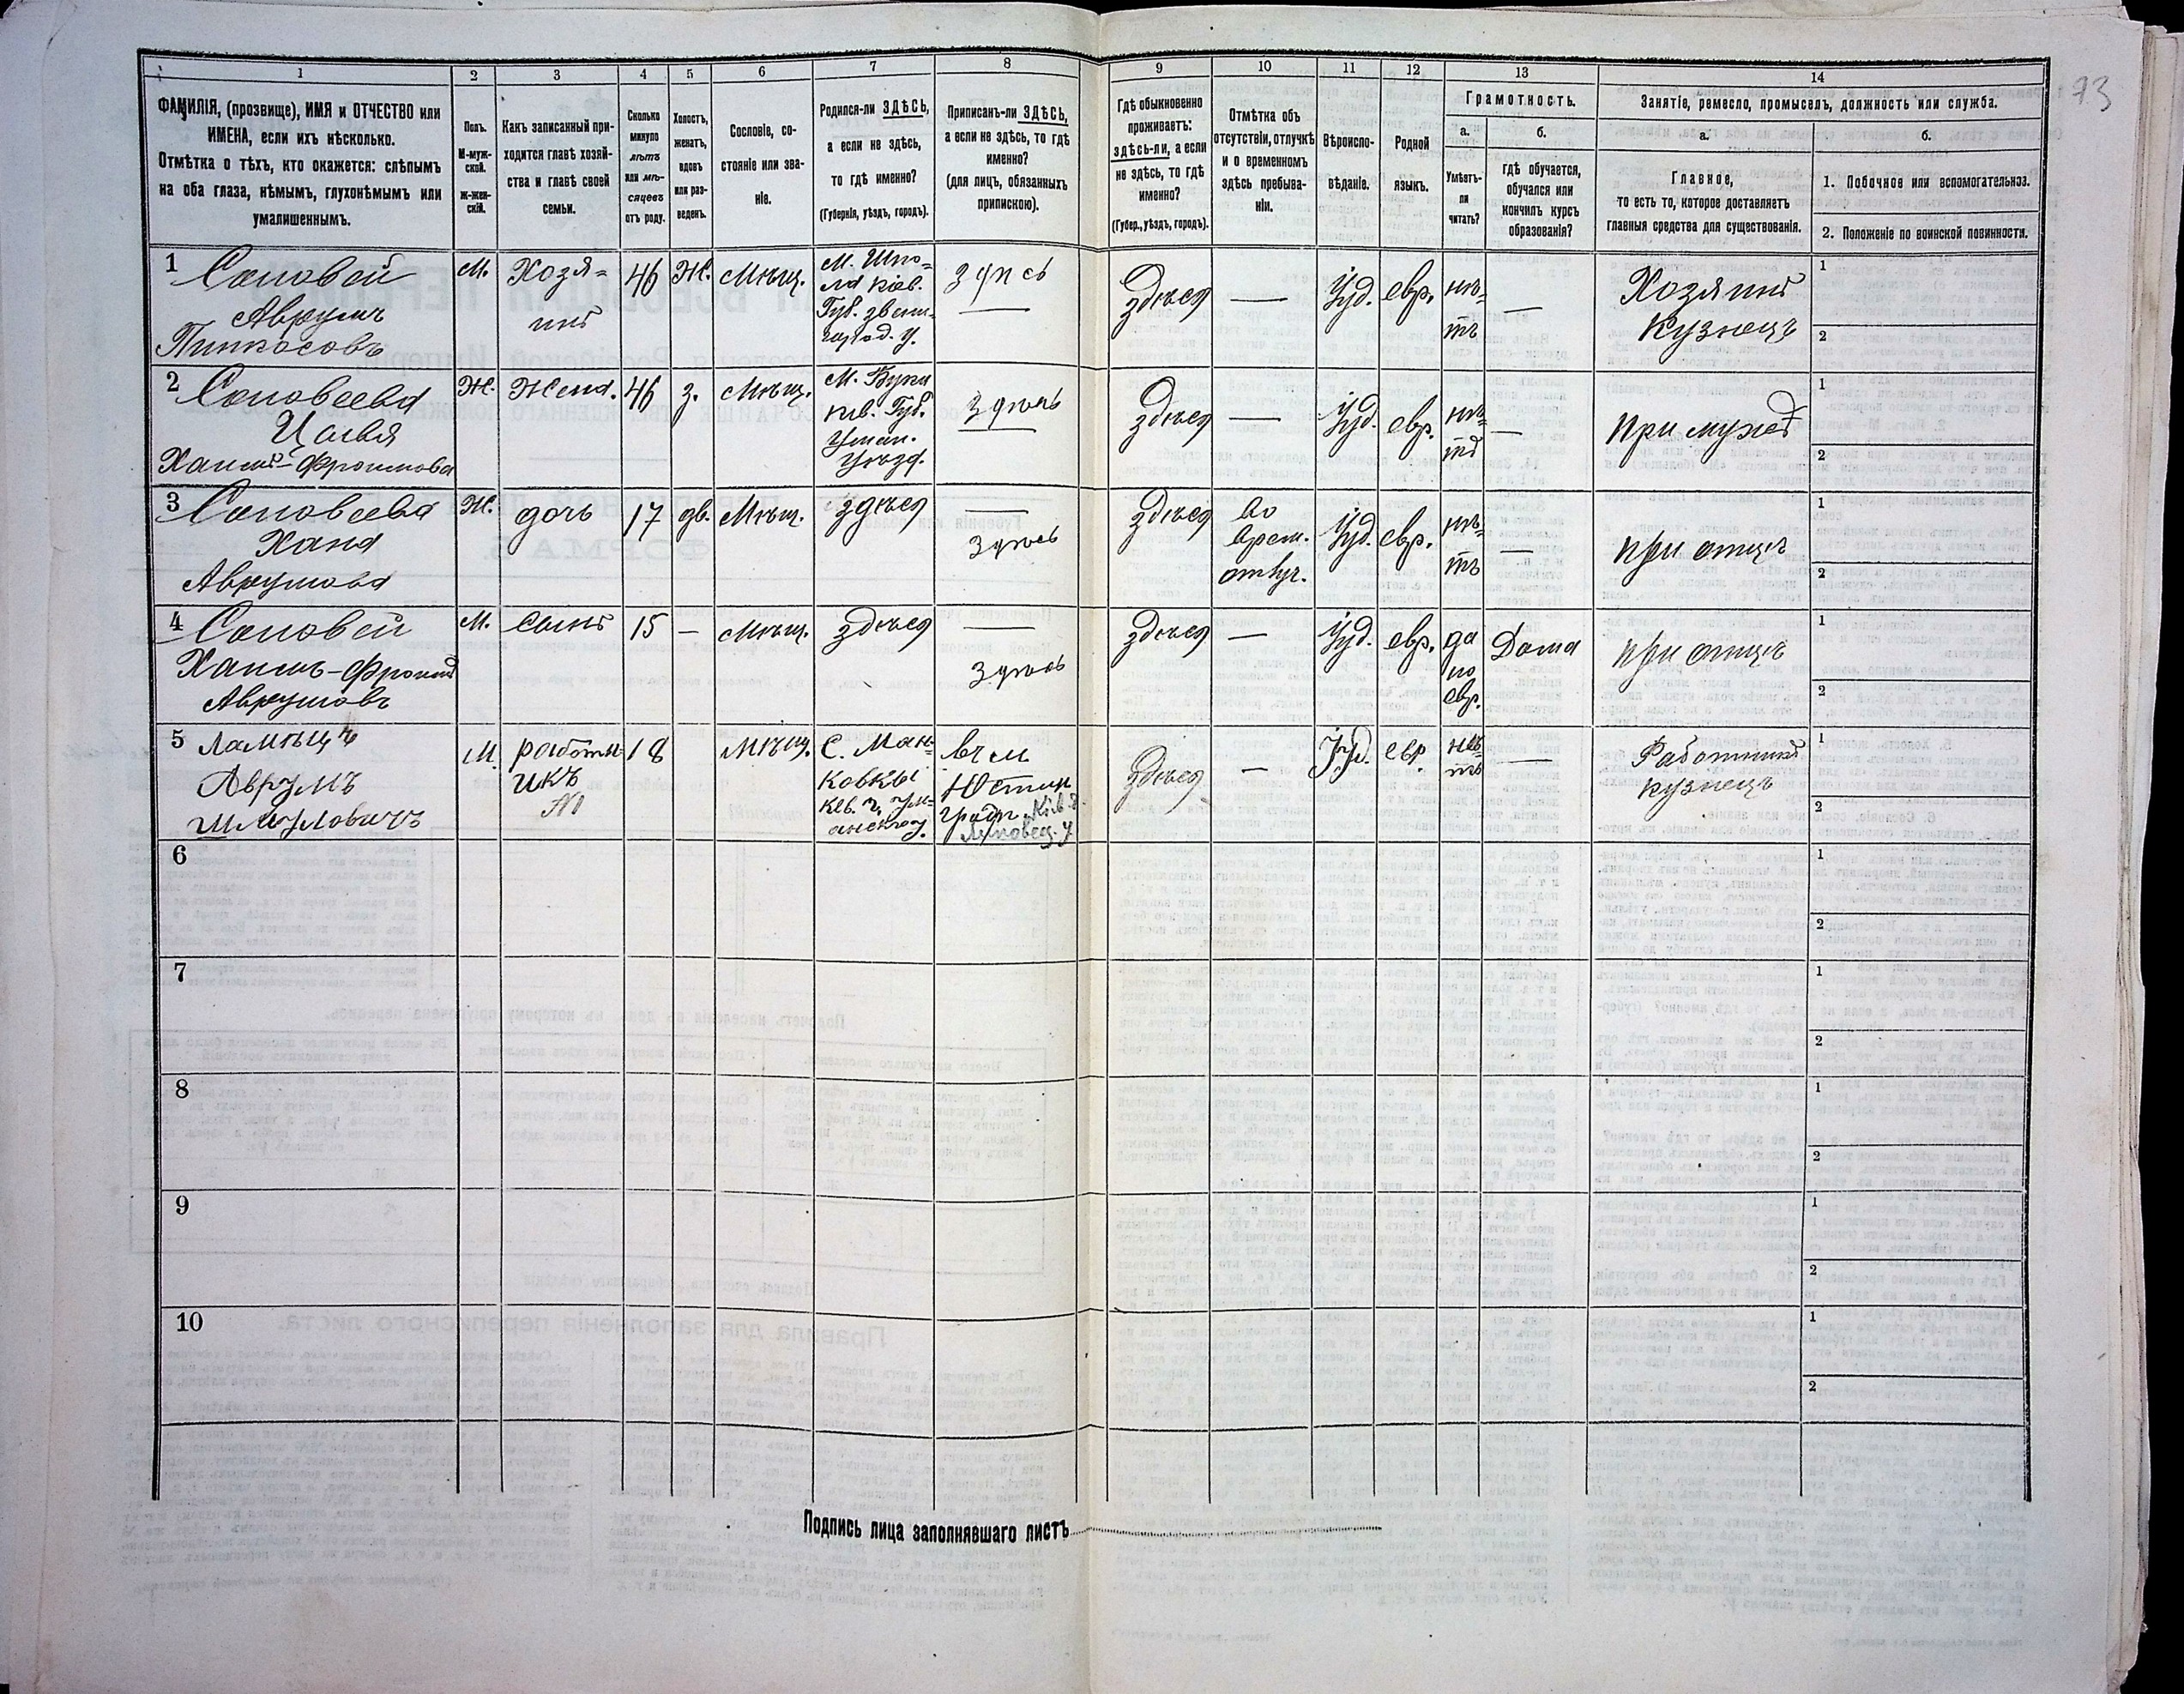 1 2 3 4 5 6 7 8 9 10 11 12 13 14
73
ФАМИЛІЯ, (прозвище), ИМЯ и ОТЧЕСТВО или
ИМЕНА, если ихъ нѣсколько.
Отмѣтка о тѣхъ, кто окажется: слѣпымъ
на оба глаза, нѣмымъ, глухонѣмымъ или
умалишеннымъ.
Полъ.
М-муж-
ской.
ж-жен-
скій.
Какъ записанный при-
ходится главѣ хозяй-
ства и главѣ своей
семьи.
Сколько
минуло
лѣтъ
или мѣ-
сяцевъ
отъ роду.
Холостъ,
женатъ,
вдовъ
или раз-
веденъ.
Сословіе, со-
стояніе или зва-
ніе.
Родился-ли ЗДѢСЬ,
а если не здѣсь,
то гдѣ именно?
(Губернія, уѣздъ, городъ).
Приписанъ-ли ЗДѢСЬ,
а если не здѣсь, то гдѣ
именно?
(для лицъ, обязанныхъ
припискою).
Гдѣ обыкновенно
проживаетъ:
здѣсь-ли, а если
не здѣсь, то гдѣ
именно?
(Губер., уѣздъ, городъ).
Отмѣтка объ
отсутствіи, отлучкѣ
и о временномъ
здѣсь пребыва-
ніи.
Вѣроиспо-
вѣданіе.
Родной
языкъ.
Грамотность.
а.
Умѣетъ-
ли
читать?
б.
гдѣ обучается,
обучался или
кончилъ курсъ
образованія?
Занятіе, ремесло, промыселъ, должность или служба.
а.
Главное,
то есть то, которое доставляетъ
главныя средства для существованія.
б.
1. Побочное или вспомогательноз.
2. Положеніе по воинской повинности.
1
Соловей
Аврумъ
Пинкосовъ
М.
Хозя-
инъ
46
Ж.
Мѣщ.
М. Шпо-
ла Кіев.
Губ. звени-
город. у.
здѣсь
здѣся
—
Іуд.
евр.
нѣ-
тъ
—
Хозяинъ
Кузнецъ
1
2
2
Соловеева
Цолья
Хаимъ-Фроимова
Ж.
Жена.
46
з.
Мѣщ.
М. Буки
кіев. Губ.
Уман.
Уѣзд.
здѣсь
здѣся
—
Іуд.
евр.
нѣ-
тъ
—
при мужѣ
1
2
3
Соловеева
Хана
Аврумова
Ж.
дочь
17
дв.
Мѣщ.
здѣся
—
здѣсь
здѣся
во
врем.
отлуч.
Іуд.
евр.
нѣ-
тъ
—
при отцѣ
1
2
4
Соловей
Хаимъ-Фроимъ
Аврумовъ
М.
Сынъ
15
—
Мѣщ.
здѣся
—
здѣсь
здѣся
—
Іуд.
евр.
да
по
евр.
Дома
при отцѣ
1
2
5
Аврумъ
Шмуловичъ
М.
работн
икъ
18
Мѣщ.
С. Мань-
ковкы
Кев. г. ум-
анскго у.
въ м
Юстин
градъ Кіев. г.
здѣся
—
Іуд.
евр.
нѣ-
тъ
—
Работникъ
кузнецъ
1
2
6
1
2
7
1
2
8
1
2
9
1
2
10
1
2
Подпись лица заполнявшаго листъ